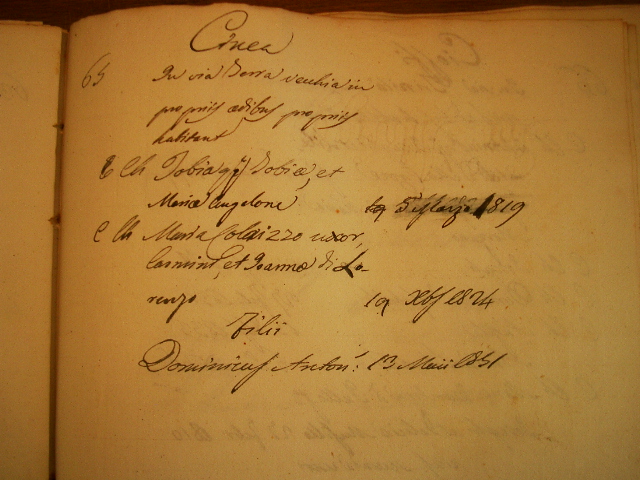 Cinea
65 In via Terra vecchia in
propriis ædibus propriis
habitant
C Ch Tobia qm Tobiæ, et
Mariæ Angelone 5 Marzo 1819
C Ch Maria Colaizzo uxor,
Carmini, et Joannæ di Lo-
renzo 10 Xbris 1824
Filii
Dominicus Anton: 13 Maii 1851